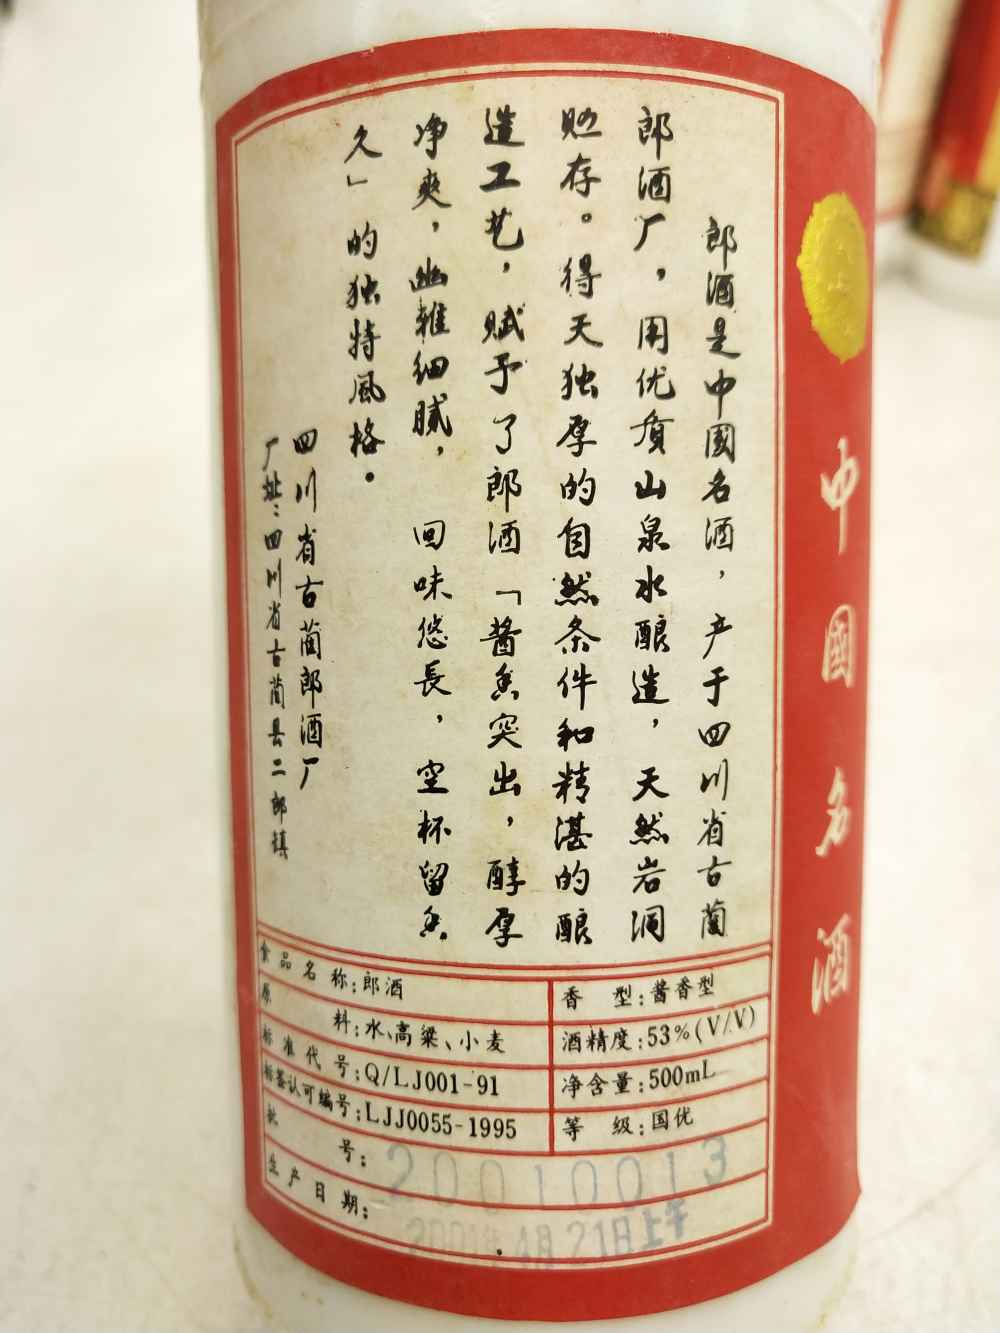 郎酒是中國名酒，产于四川省古蔺
郎酒厂，用优质山泉水酿造，天然岩洞
贮存。得天独厚的自然条件和精湛的酿
造工艺，赋予了郎酒「酱香突出，醇厚
净爽，幽雅细腻，回味悠長，空杯留香
久」的独特風格。
四川省古蔺郎酒厂
厂址：四川省古蔺县二郎镇
中國名酒
食品名称：郎酒
香型：酱香型
原料：水、高粱、小麦
酒精度：53%(V/V)
标准代号：Q/LJ001-91
净含量：500mL
标签认可编号：LJJ0055-1995
等级：国优
批号：20010013
生产日期：2001年4月21日上午